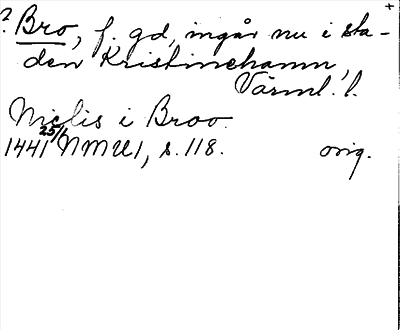 ? Bro, f. gd, ingår nu i sta-
den Kristinehamn,
Värml. l.
Niclis i Broo.
1441 25/1 NMU1, s. 118. orig.